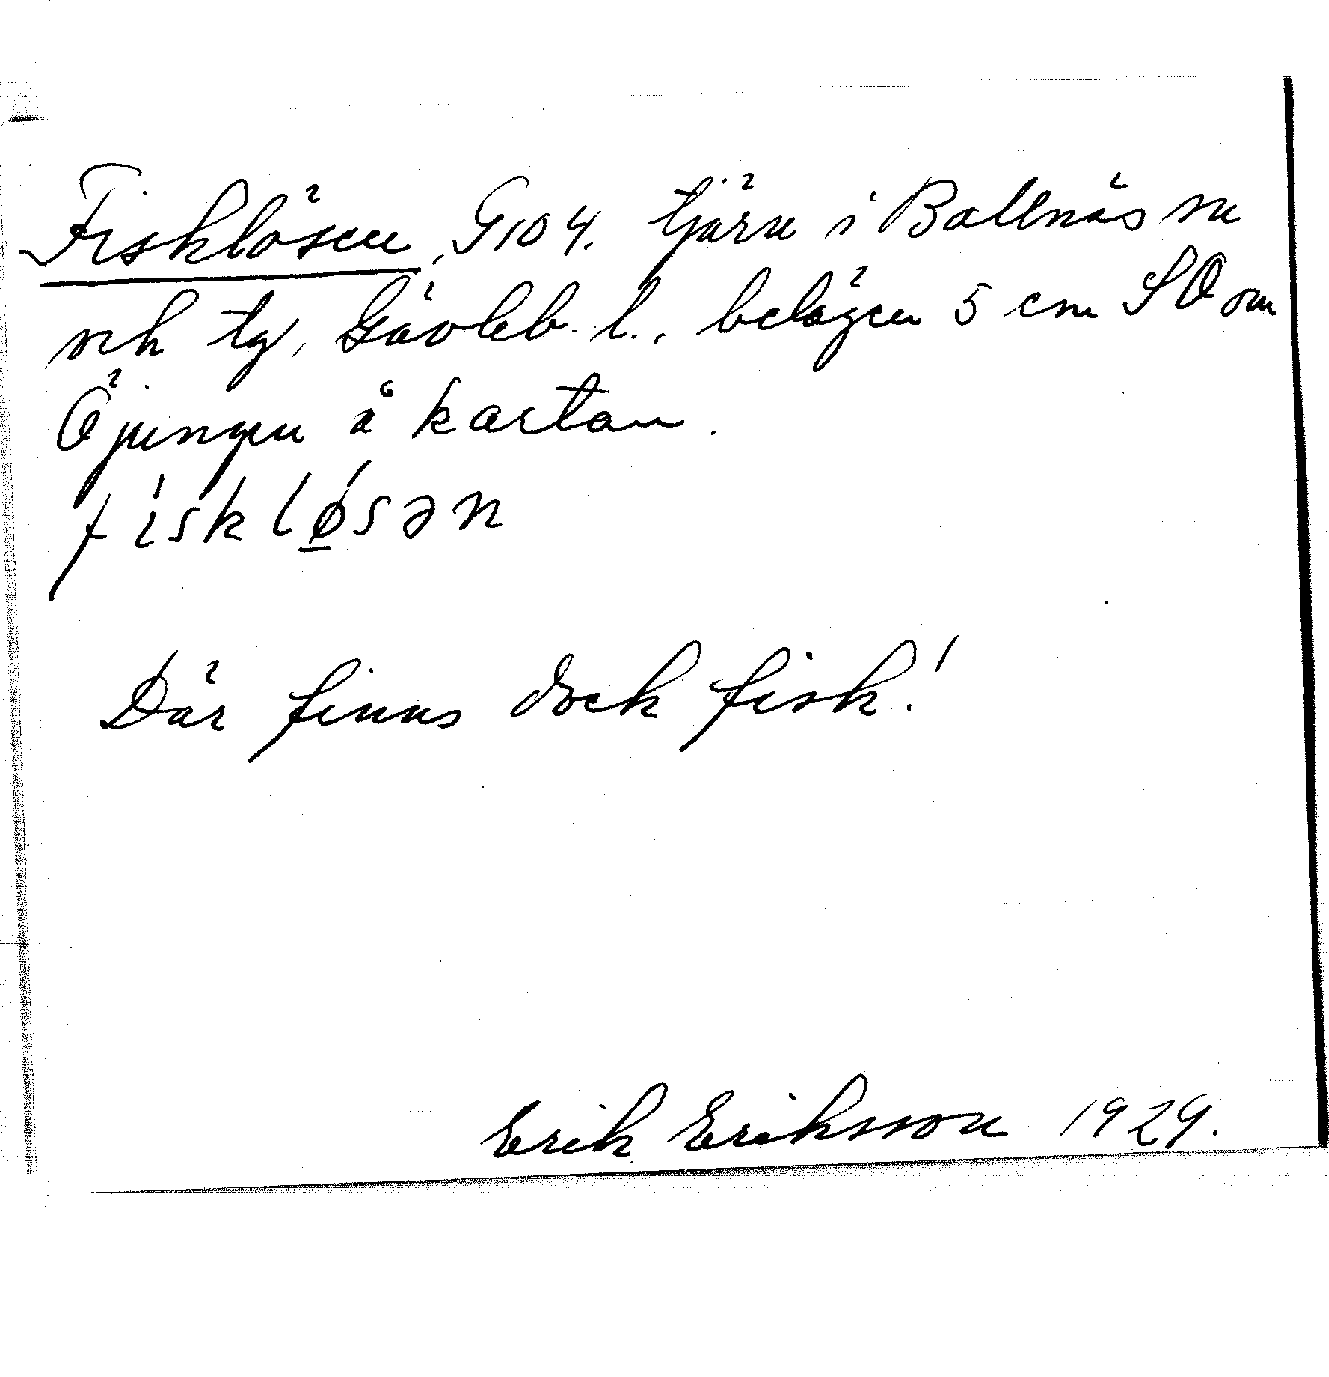 Fisklösen, G104. tjärn i Bollnäs sn
och tg, Gävleb. l., belägen 5 cm SO om
Öjungen å kartan.
fisklø̱sən
Där finns dock fisk!
Erik Eriksson 1929.